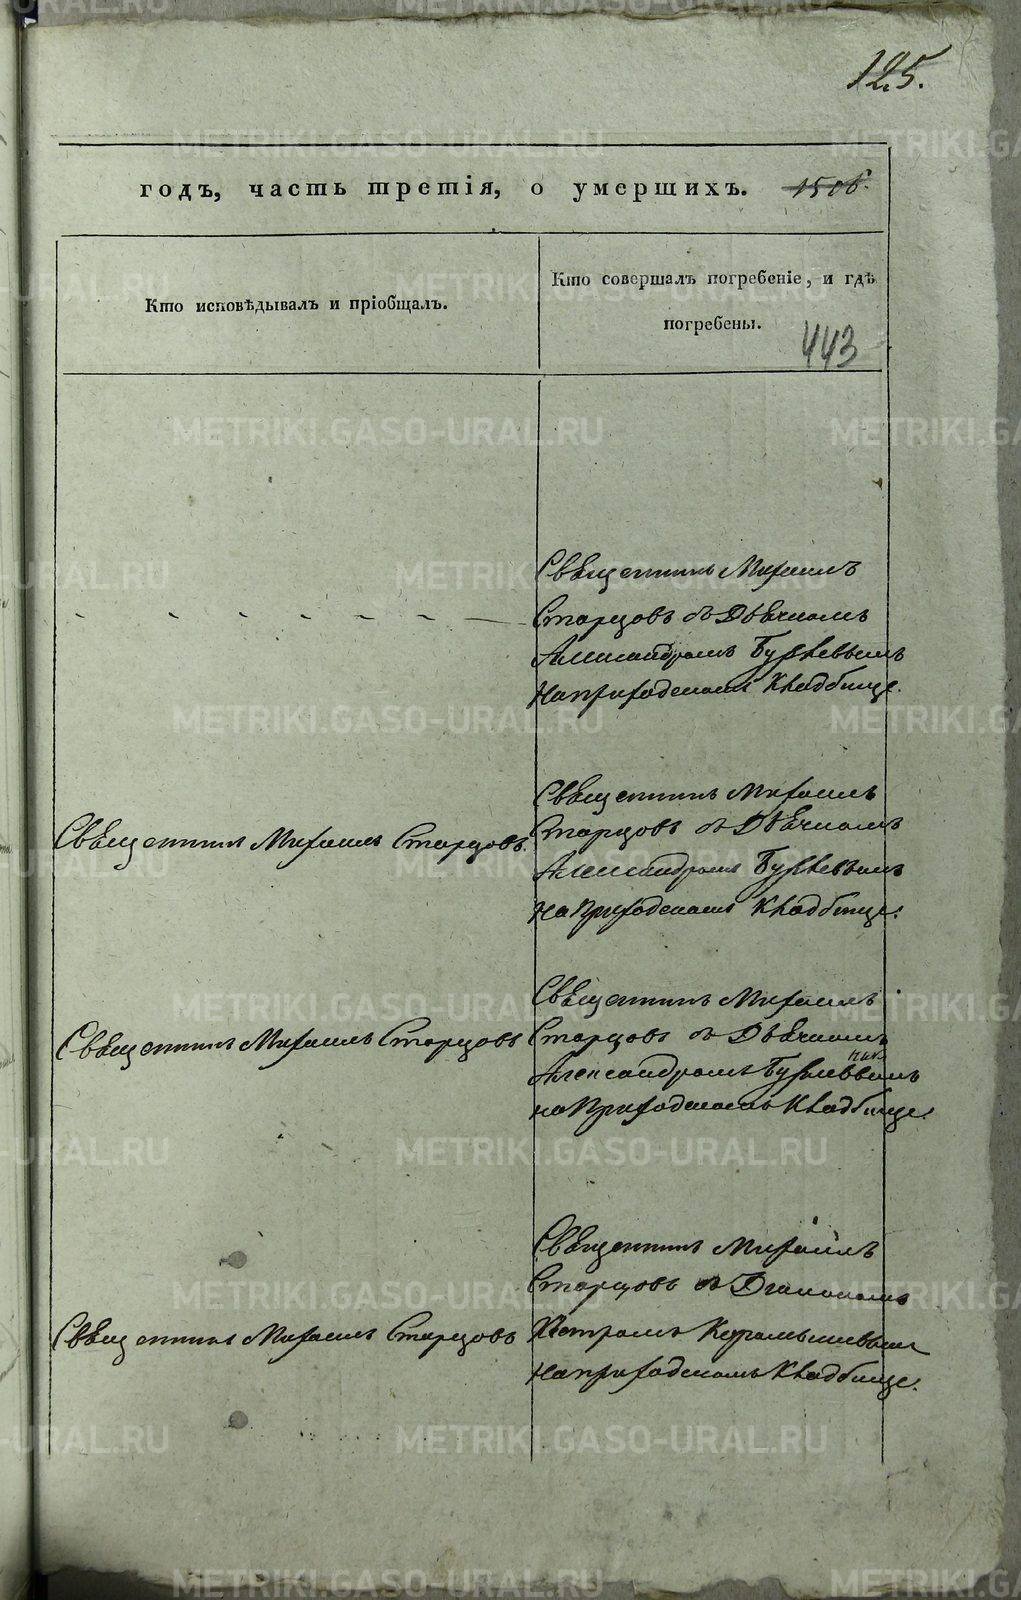 125.
годъ, часть третія, о умершихъ. 1506.
Кто исповѣдывалъ и пріобщалъ.
Кто совершалъ погребеніе, и гдѣ
погребены.
443
Священникъ Михаилъ
Старцовъ съ Дьячкомъ
Александромъ
На приходскомъ Кладбище.
Священникъ Михаилъ Старцовъ.
Священникъ Михаилъ
Старцовъ съ Дьячкомъ
Александромъ
На Приходскомъ Кладбище.
Священникъ Михаилъ Старцовъ
Священникъ Михаилъ
Старцовъ съ Дьячкомъ
Александромъ
на Приходскомъ Кладбище.
Священникъ Михаилъ Старцовъ
Священникъ Михаилъ
Старцовъ съ Діакономъ
Петромъ
На приходскомъ Кладбище.
METRIKI.GASO-URAL.RU